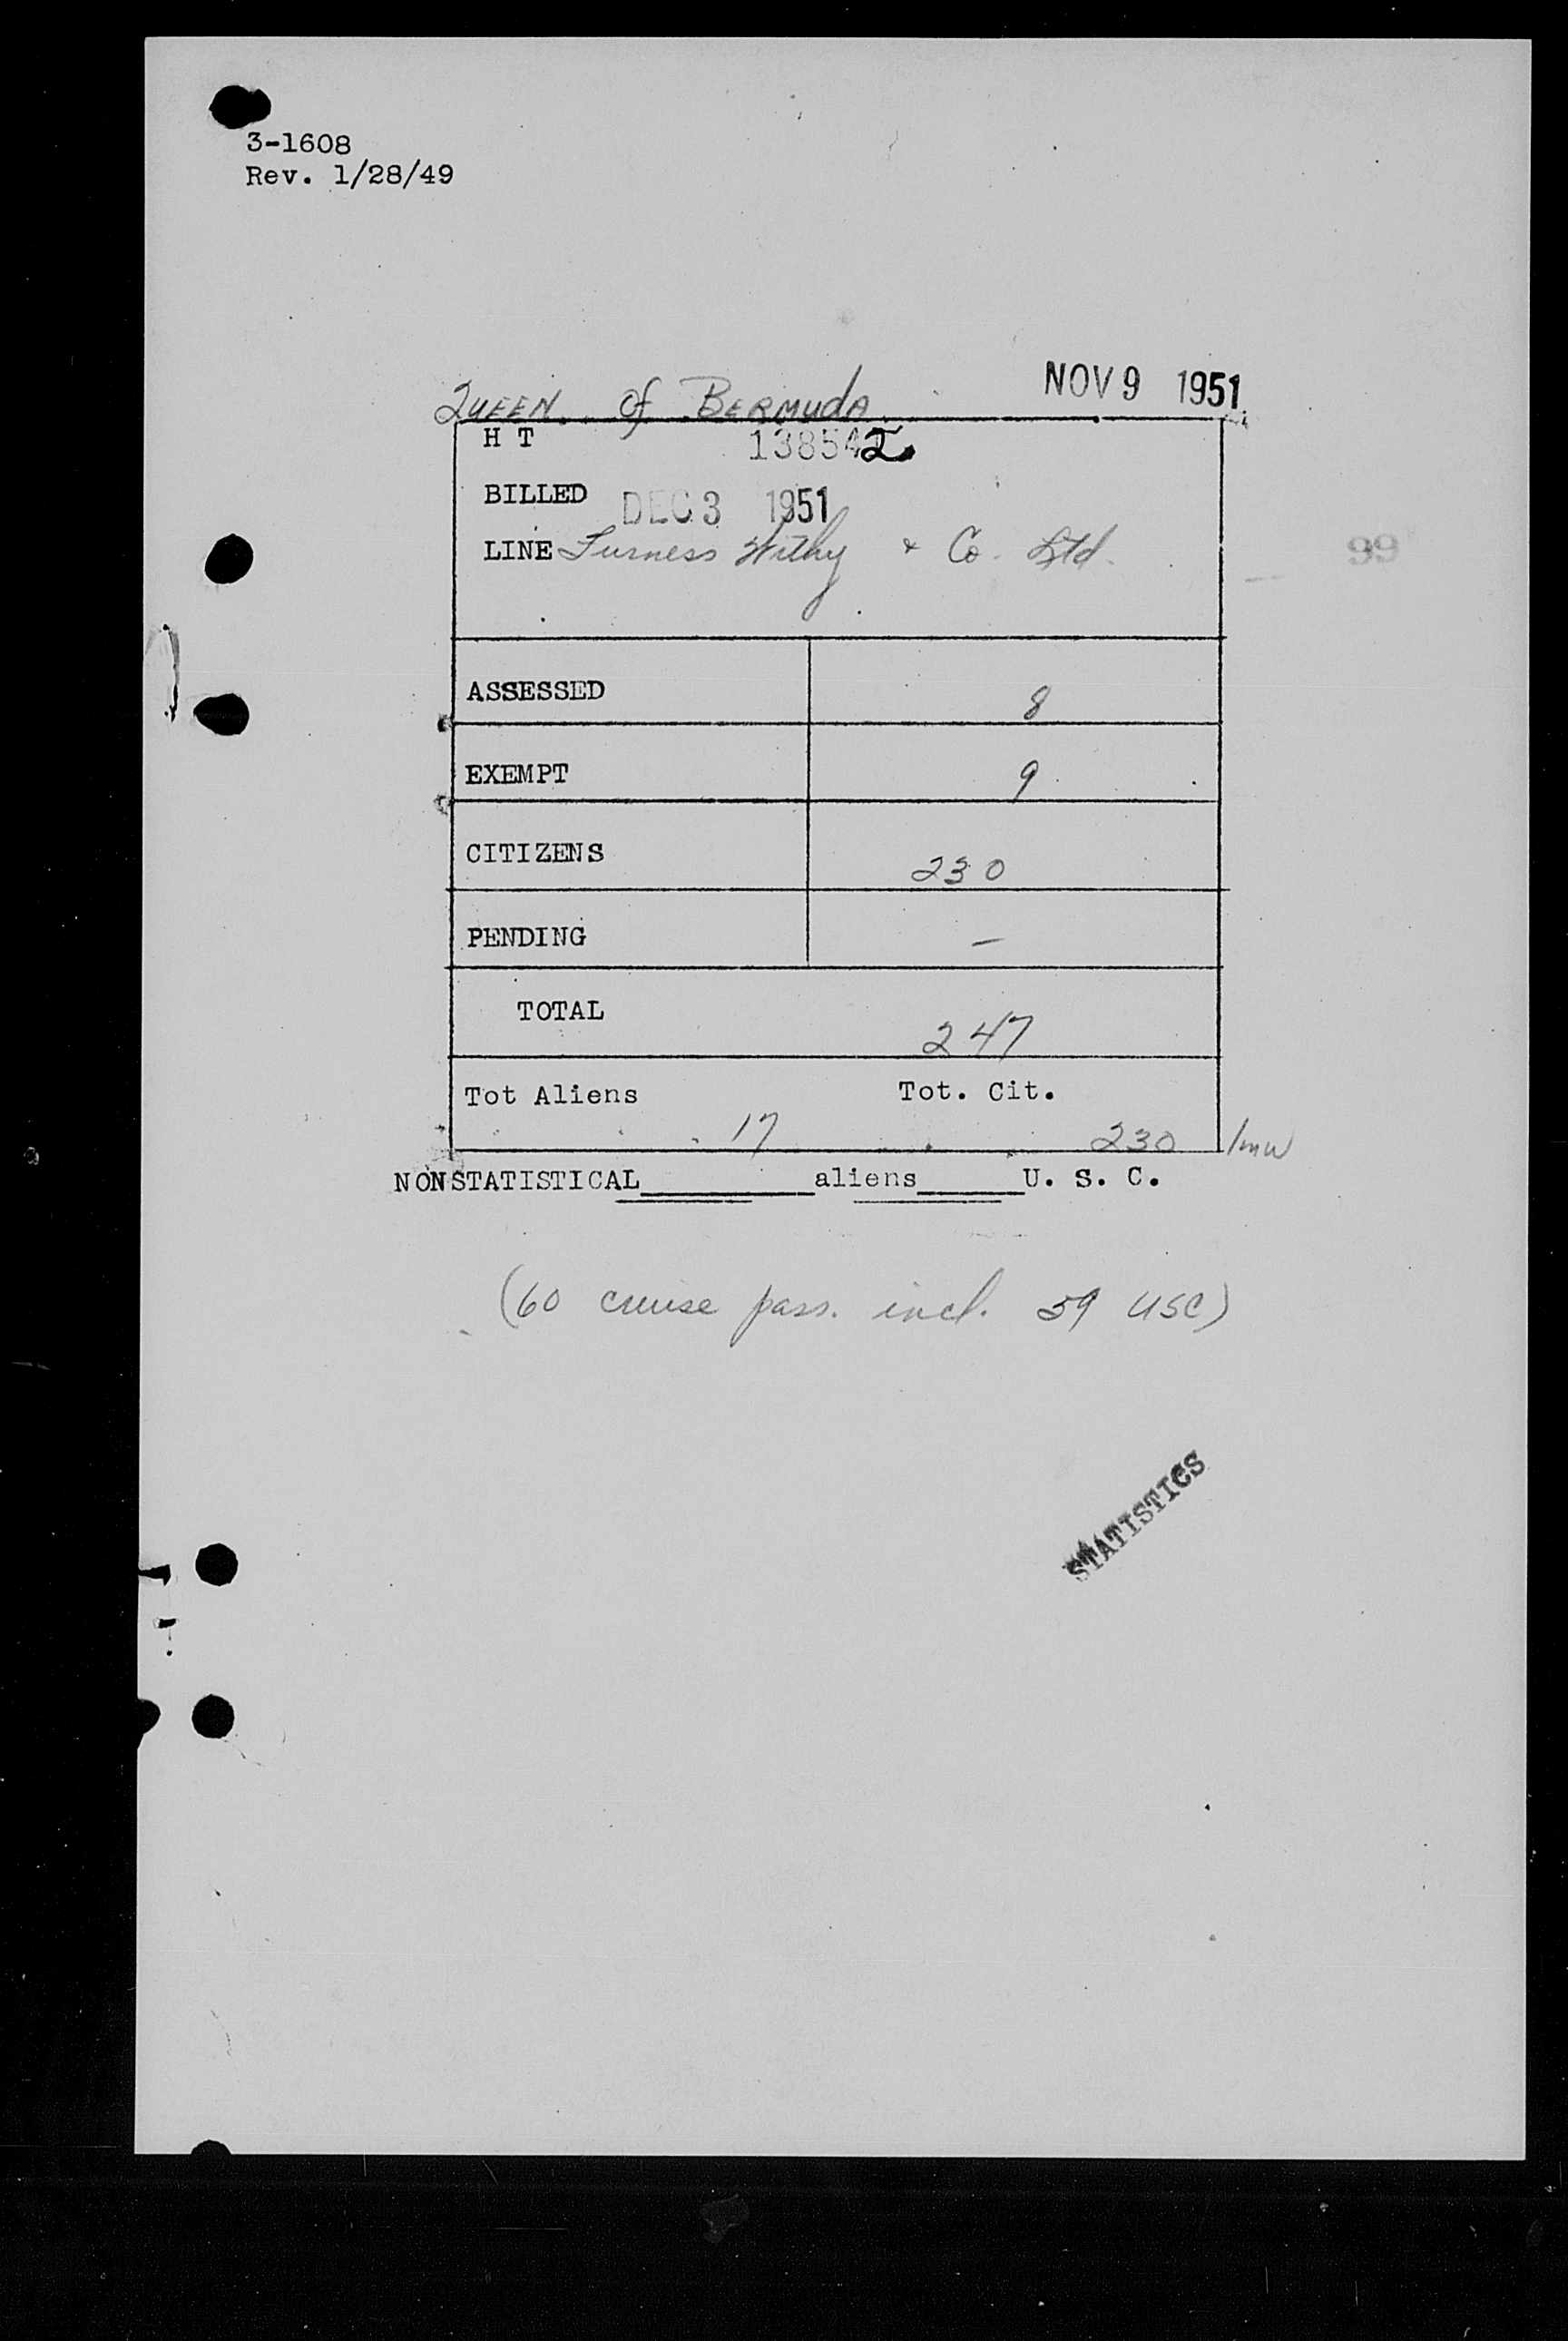 3-1608
Rev. 1/28/49
QUEEN of BERMUDA NOV 9 1951
H T 138542
BILLED DEC 3 1951
LINE Furness Withy & Co. Ltd.
99
ASSESSED 8
EXEMPT 9
CITIZENS 230
PENDING —
TOTAL 247
Tot Aliens Tot. Cit.
17 230
NONSTATISTICAL__________aliens______U. S. C.
(60 cruise pass. incl. 59 USC)
STATISTICS